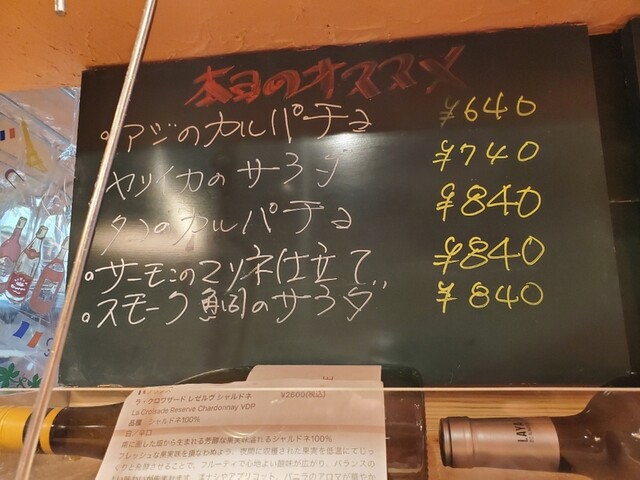 本日のオススメ
・アジのカルパチョ ¥640
ヤリイカのサラダ ¥740
タコのカルパチョ ¥840
・サーモンのマリネ仕立て ¥840
・スモーク鴨のサラダ ¥840
ラ・クロワザード レゼルヴ シャルドネ ¥2600(税込)
La Croisade Reserve Chardonnay VDP
品種 シャルドネ100%
白/辛口
南に面した畑から生まれる芳醇な果実味溢れるシャルドネ100%
フレッシュな果実味を損なわぬよう、夜間に収穫された果実を低温にてじっ
くりと発酵させることで、フルーティで心地よい酸味が広がり、バランスの
LAYA